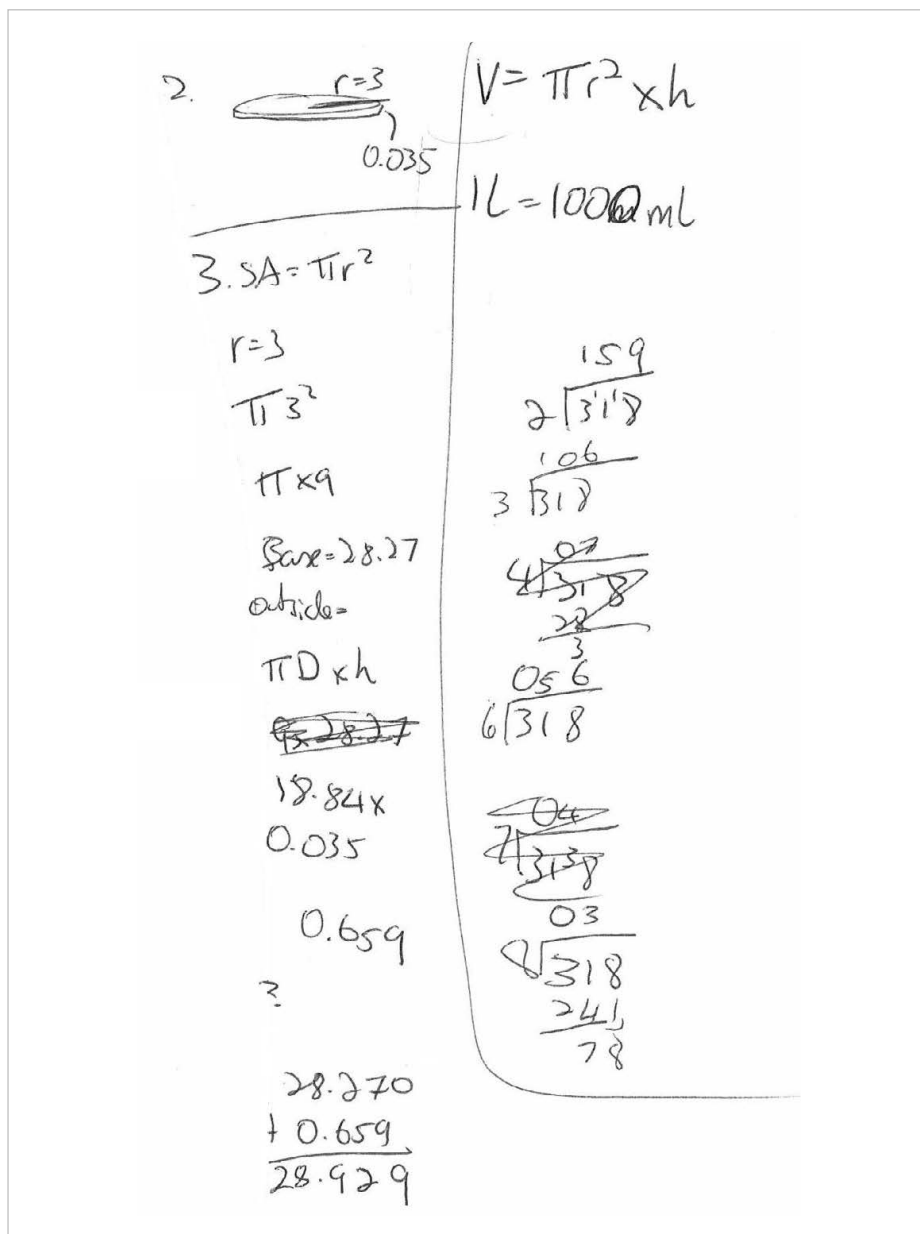 2.
r=3
0.035
3. SA=πr²
r=3
π3²
π×9
Base=28.27
outside=
πD×h
9×28.27
18.84×
0.035
0.659
?
28.270
+ 0.659
28.929
V=πr²×h
1L=1000ml
159
2 3118
106
3 318
07
4 318
28
3
056
6 318
04
7 3138
03
8 318
24↓
78